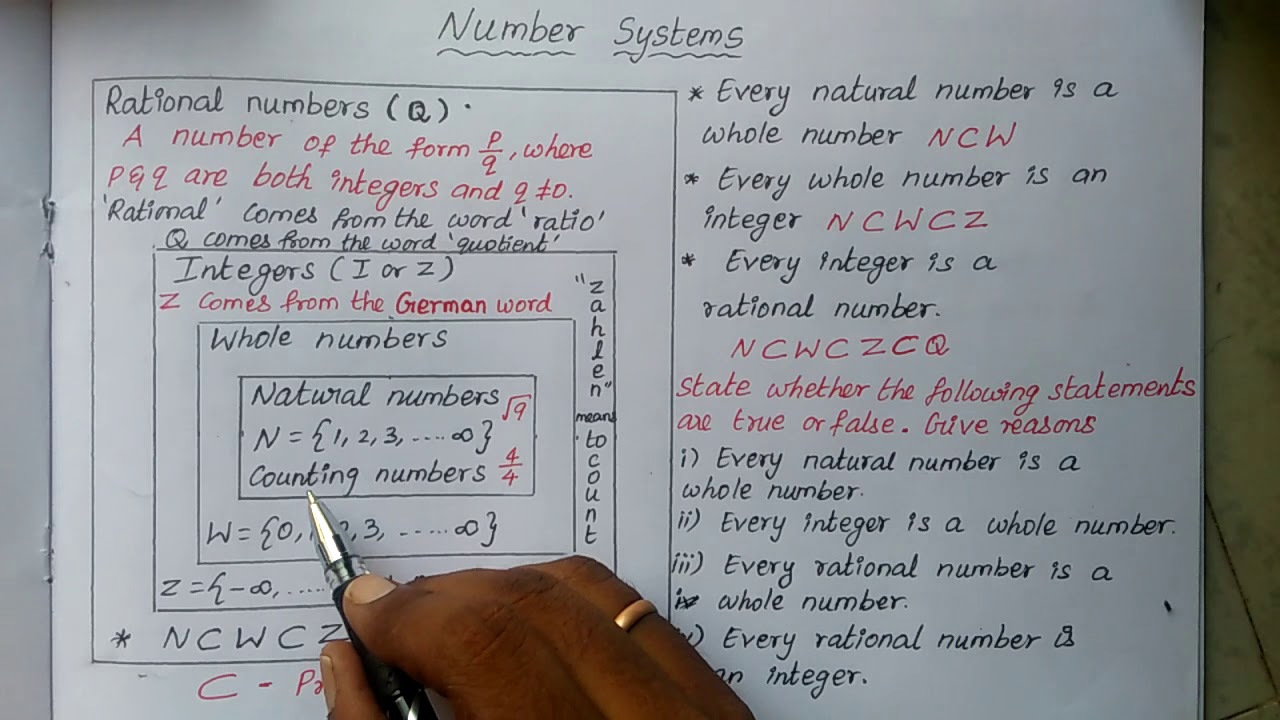 Number Systems
Rational numbers (Q).
A number of the form p/q, where
p & q are both integers and q ≠ 0.
'Rational' comes from the word 'ratio'
Q comes from the word 'quotient'
Integers (I or Z)
Z comes from the German word
"zahlen" means to count
Whole numbers
Natural numbers √9
N = {1, 2, 3, ....∞}
Counting numbers 4/4
W = {0, 2, 3, .....∞}
Z = {-∞, .....
* N ⊂ W ⊂ Z
⊂ -
* Every natural number is a
whole number N⊂W
* Every whole number is an
integer N⊂W⊂Z
* Every integer is a
rational number.
N⊂W⊂Z⊂Q
State whether the following statements
are true or false. Give reasons
i) Every natural number is a
whole number.
ii) Every integer is a whole number.
iii) Every rational number is a
whole number.
) Every rational number is
an integer.